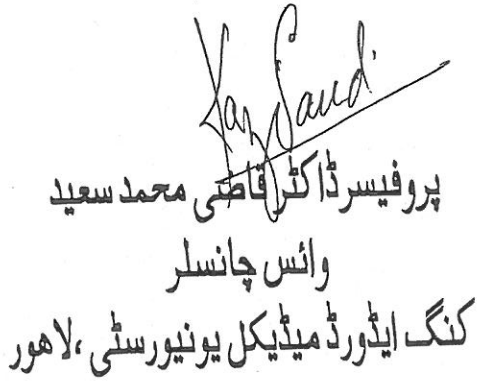 پروفیسر ڈاکٹر قاضی محمد سعید
وائس چانسلر
کنگ ایڈورڈ میڈیکل یونیورسٹی ،لاھور